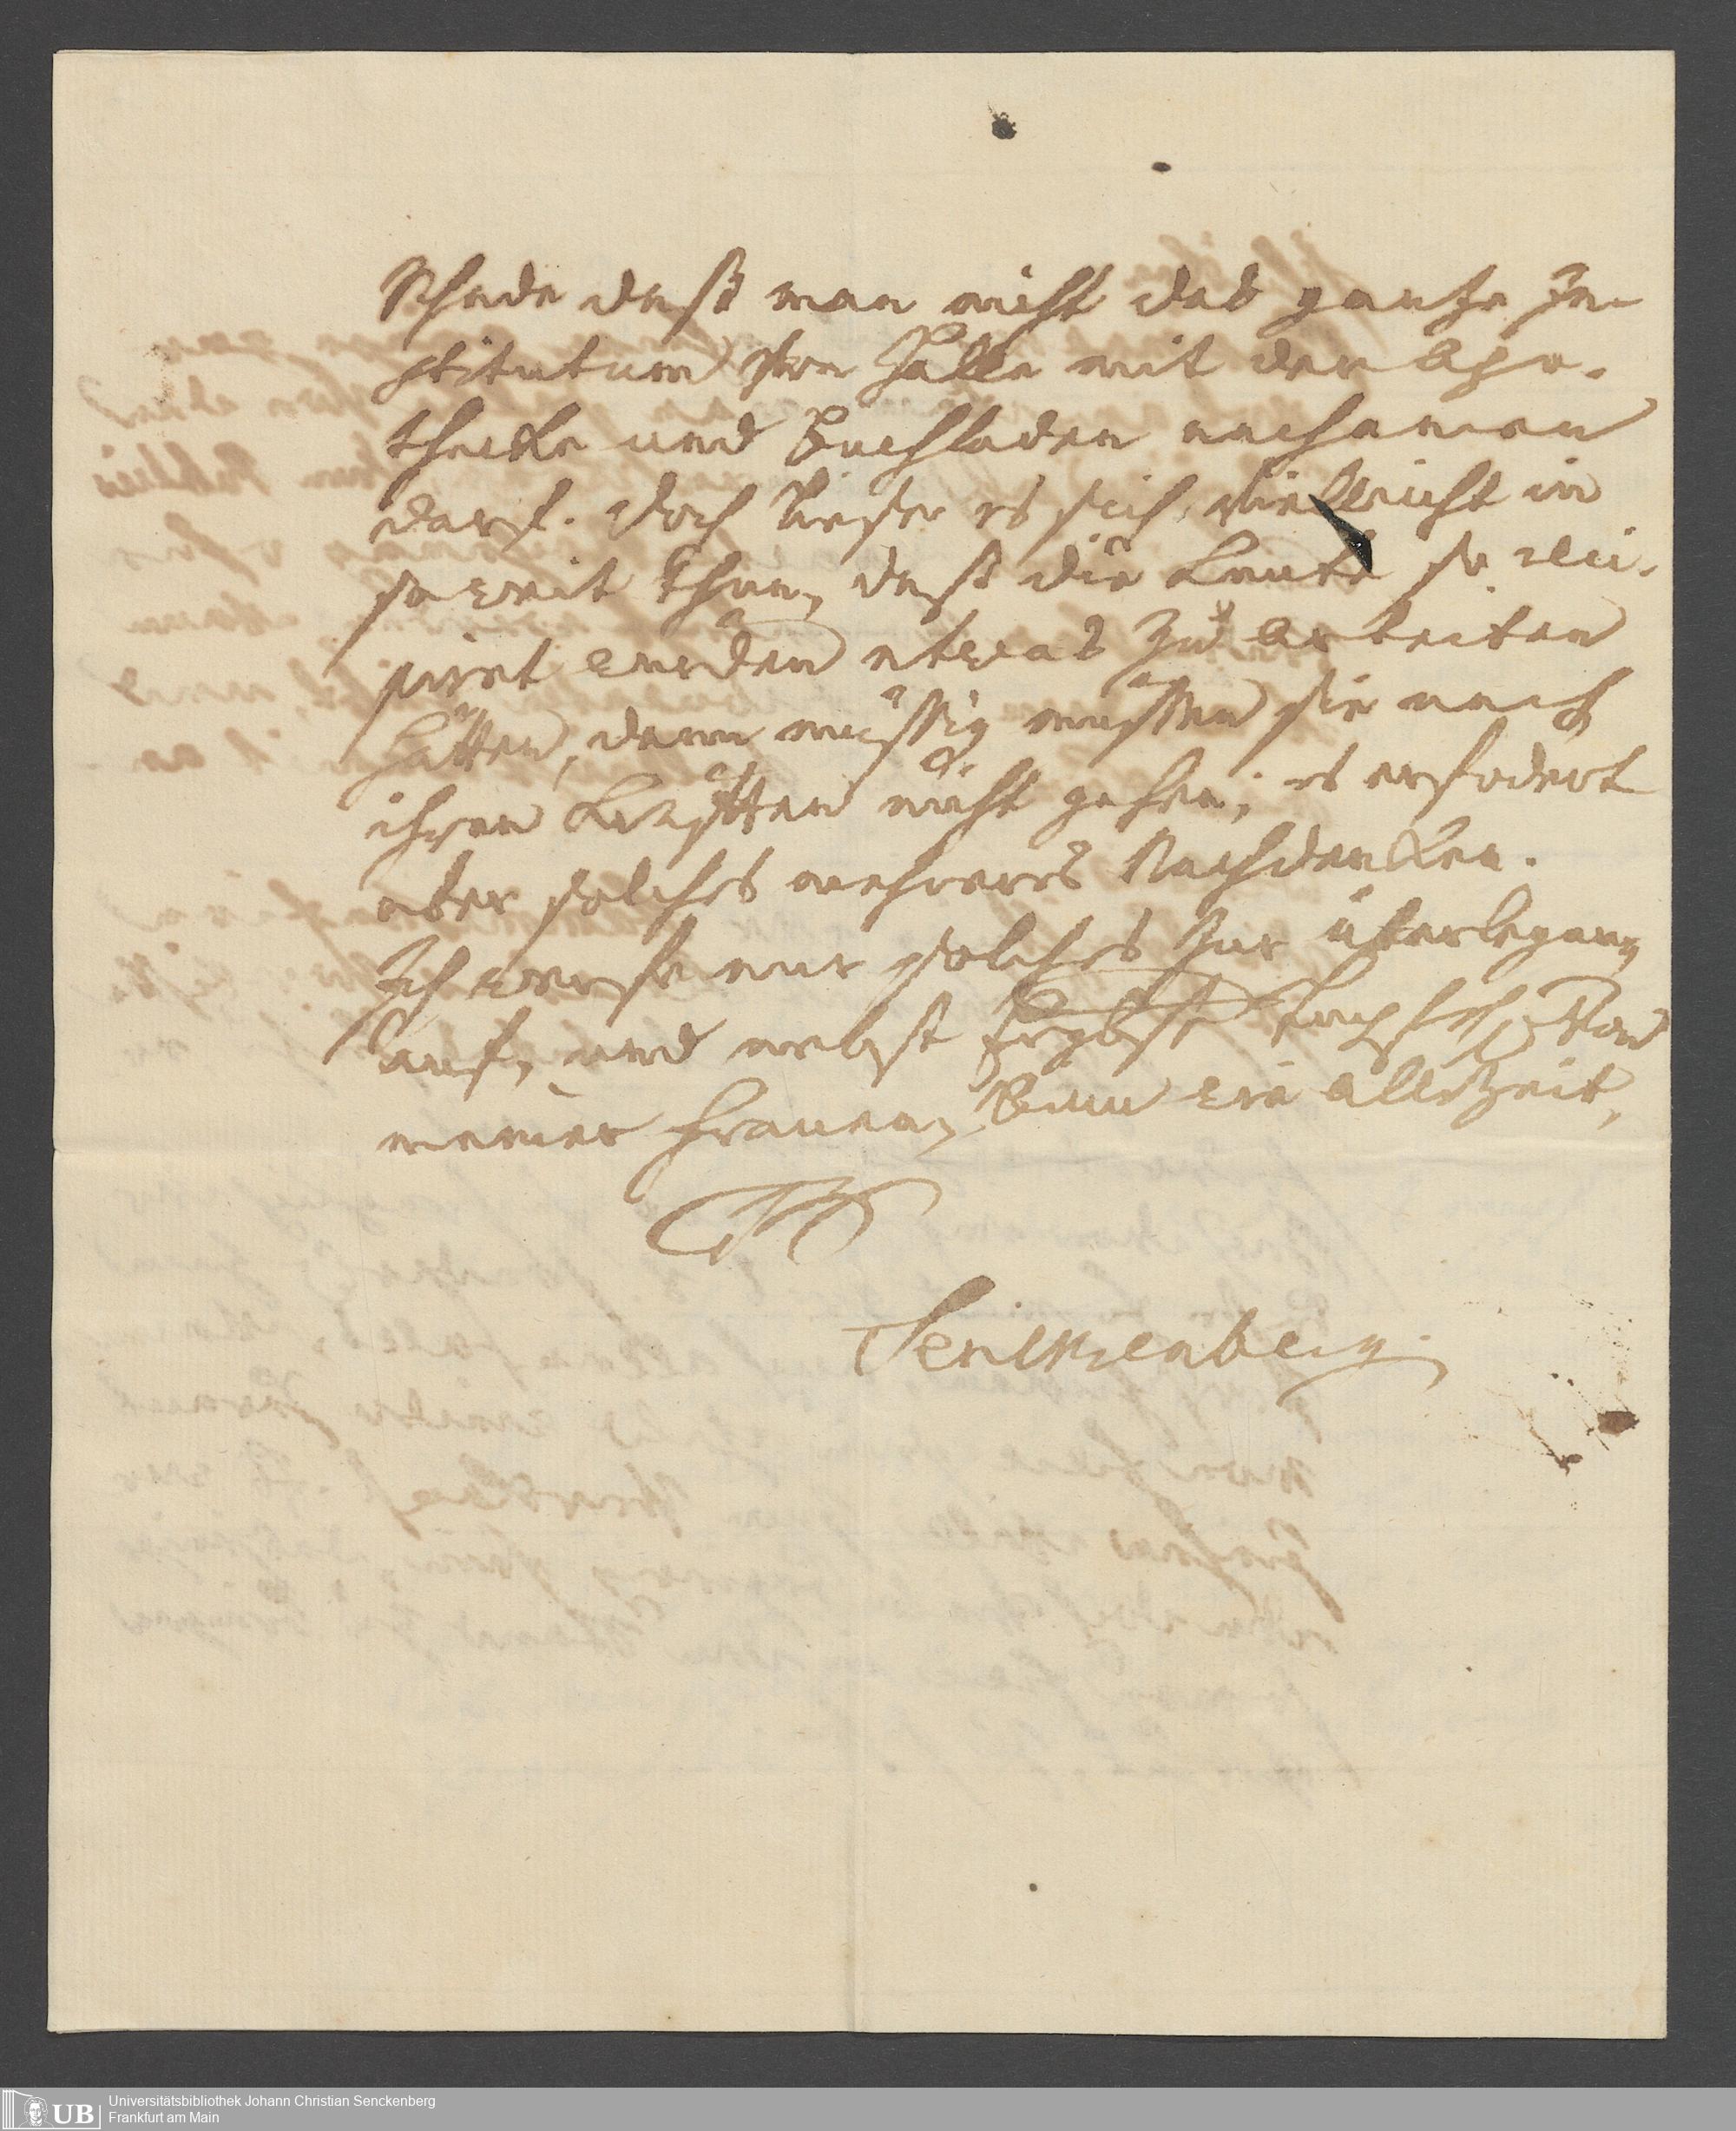 Schade daß man nicht das gantze In-
stitutum von Halle mit der Apo-
thecke und Buchladen nachamen
darf. Doch liese es sich vielleicht in
so weit thun, daß die Leute so rui-
nirt wurden etwas zu arbeiten
hätten, denn müssig müssen sie nach
ihren Kräfften nicht gehen; es erfodert
aber solches mehreres Nachdencken.
Ich werfe nur solches zur überlegung
auf, und nebst von
meiner Frauen, binn wie allezeit,
Senckenberg.
UB
Universitätsbibliothek Johann Christian Senckenberg
Frankfurt am Main